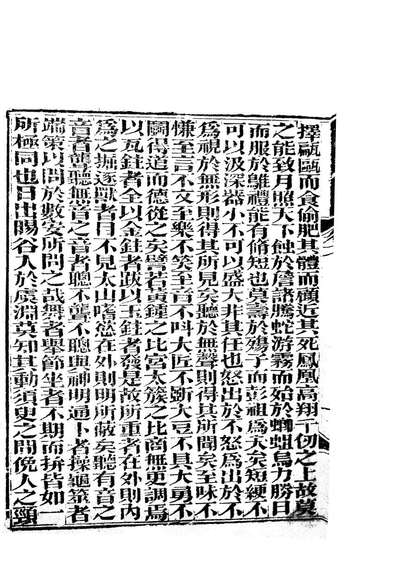 擇甂甌而食偷肥其體而顧近其死鳳凰高翔千仞之上故莫
之能致月照天下蝕於詹諸騰蛇游霧而殆於蝍蛆烏力勝日
而服於鵻禮能有脩短也莫壽於殤子而彭祖為夭矣短綆不
可以汲深器小不可以盛大非其任也怒出於不怒為出於不
為視於無形則得其所見矣聽於無聲則得其所聞矣至味不
慊至言不文至樂不笑至音不叫大匠不斲大豆不具大勇不
鬭得道而德從之矣譬若黃鍾之比宮太蔟之比商無更調焉
以瓦鉒者全以金鉒者跋以玉鉒者發是故所重者在外則內
為之掘逐獸者目不見太山嗜慾在外則明所蔽矣聽有音之
音者聾聽無音之音者聰不聾不聰與神明通卜者操龜筮者
端策以問於數安所問之哉舞者舉節坐者不期而拚皆如一
所極同也日出暘谷入於虞淵莫知其動須臾之間俛人之頸